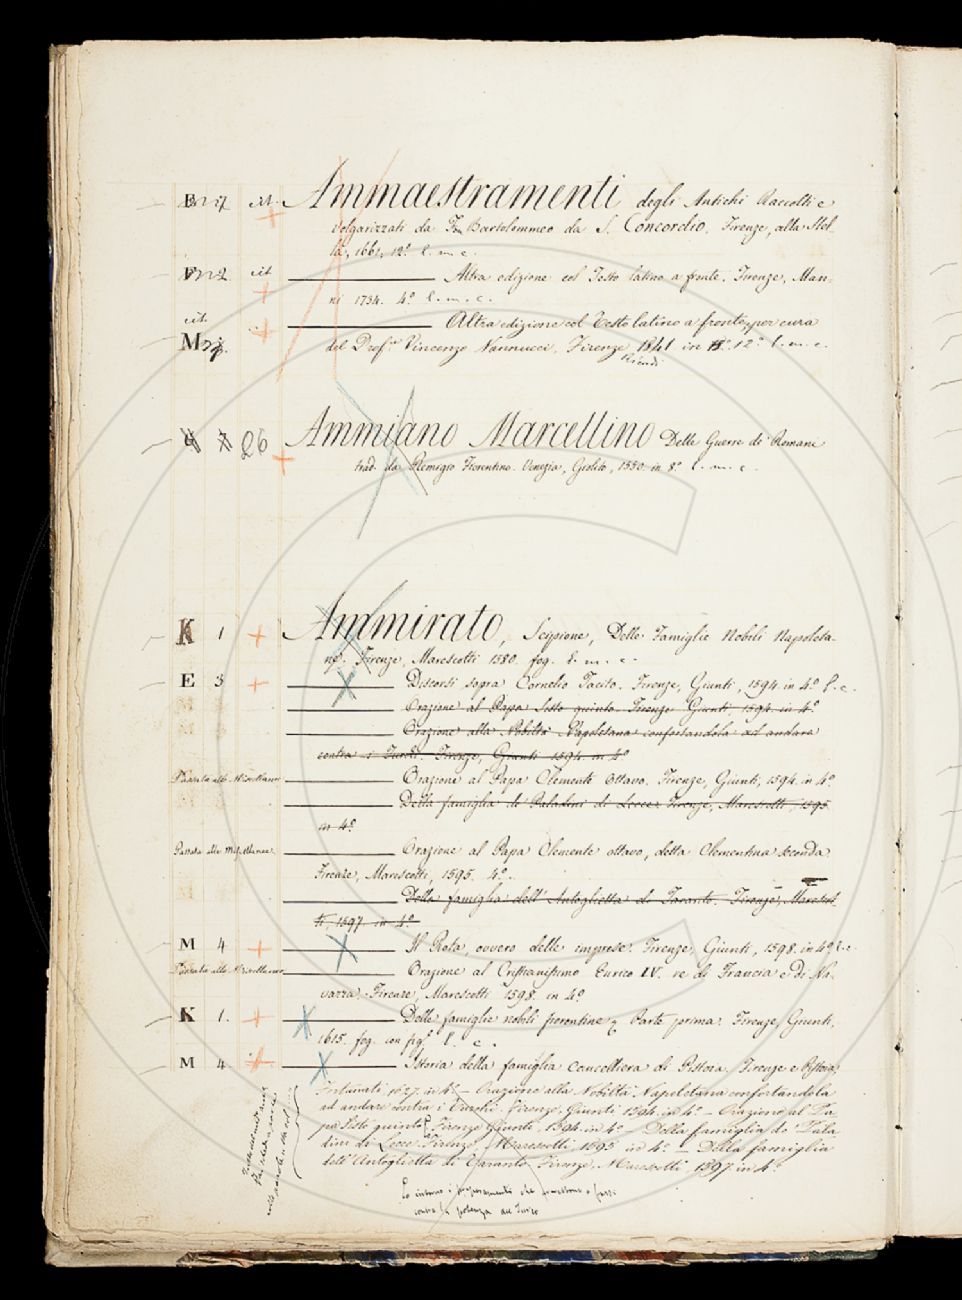 Ammaestramenti degli Antichi Raccolti e
volgarizzati da Fra Bartolommeo da S. Concordio. Firenze, alla Stel-
la, 1661, 12.º l. m. c.
cit Altra edizione col Testo latino a fronte. Firenze, Man-
ni 1734. 4.º l. m. c.
cit. Altra edizione col Testo latino a fronte, per cura
M del Prof.re Vincenzo Nannucci. Firenze, 1841 in 12.º l. m. c.
26 Ammiano Marcellino Delle Guerre de Romani
trad. da Remigio Fiorentino. Venezia, Giolito, 1550 in 8.º l. m. c.
K 1 Ammirato, Scipione, Delle Famiglie Nobili Napoleta-
ne. Firenze, Marescotti 1580. fog. l. m. c.
E 3 Discorsi sopra Cornelio Tacito. Firenze, Giunti, 1594. in 4.º l. c.
Orazione al Papa Sisto quinto. Firenze Giunti 1594. in 4.º
Orazione alla Nobiltà Napoletana confortandola ad andare
contra i Turchi. Firenze, Giunti 1594. in 4.º
Passata alle Miscellanee Orazione al Papa Clemente Ottavo. Firenze, Giunti, 1594. in 4.º
Della famiglia de' Paladini di Lecce. Firenze, Marescotti, 1595.
in 4.º
Passata alle Miscellanee Orazione al Papa Clemente ottavo, detta Clementina seconda.
Firenze, Marescotti, 1595. 4.º
Della famiglia dell' Antoglietta di Taranto. Firenze, Marescot-
ti, 1597. in 4.º
M 4 Il Rota, ovvero delle imprese. Firenze, Giunti, 1598. in 4.º l. c.
Passata alle Miscellanee Orazione al Cristianissimo Enrico IV. re di Francia e di Na-
varra. Firenze, Marescotti 1598. in 4.º
K 1. Delle famiglie nobili fiorentine Parte prima. Firenze, Giunti,
1615. fog. con fig. l. c.
M 4 Istoria della famiglia Cancelliera di Pistoia. Firenze e Pistoia,
Fortunati 1627. in 4.º — Orazione alla Nobiltà Napoletana confortandola
ad andare contra i Turchi. Firenze, Giunti 1594. in 4.º — Orazione al Pa-
pa Sisto quinto. Firenze Giunti 1594. in 4.º — Della famiglia de' Pala-
dini di Lecce. Firenze, Marescotti 1595 in 4.º — Della famiglia
dell'Antoglietta di Taranto. Firenze, Marescotti, 1597. in 4.º
intorno i preparamenti che
contro la potenza del Turco